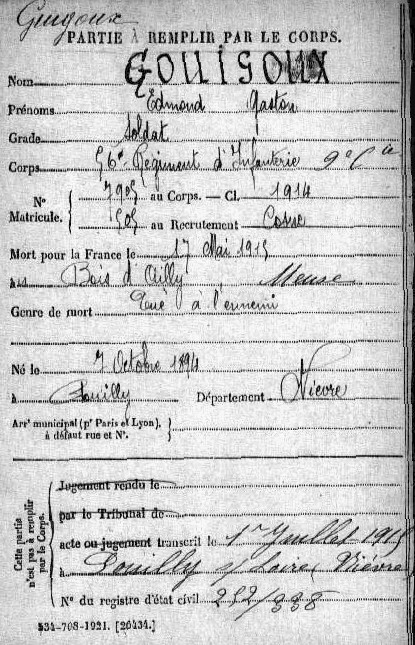 Guigoux
PARTIE À REMPLIR PAR LE CORPS.
Nom GOUIGOUX
Prénoms Edmond Gaston
Grade Soldat
Corps 56e Régiment d'Infanterie 9e Cie
N° Matricule. { 7905 au Corps. — Cl. 1914
505 au Recrutement Cosne
Mort pour la France le 17 Mai 1915
à Bois d'Ailly Meuse
Genre de mort Tué à l'ennemi
Né le 7 Octobre 1894
à Pouilly Département Nièvre
Arrt municipal (pr Paris et Lyon),
à défaut rue et N°.
Cette partie n'est pas à remplir par le Corps.
Jugement rendu le
par le Tribunal de
acte ou jugement transcrit le 1er Juillet 1915
à Pouilly s/Loire (Nièvre)
N° du registre d'état civil 252/338
534-708-1921. [26434.]